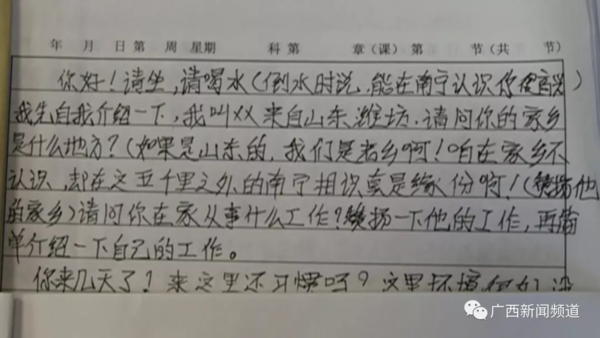 年 月 日 第 周 星期 科 第 章(课) 第 节(共 节)
你好!请坐,请喝水(倒水时说,能在南宁认识你很高兴)
我先自我介绍一下,我叫XX来自山东潍坊.请问你的家乡
是什么地方?(如果是山东的,我们是老乡啊!咱在家乡不
认识,却在这五千里之外的南宁相识真是缘份啊!(赞扬他
的家乡)请问你在家从事什么工作?赞扬一下他的工作,再简
单介绍一下自己的工作。
你来几天了?来这里还习惯吗?这里环境
广西新闻频道